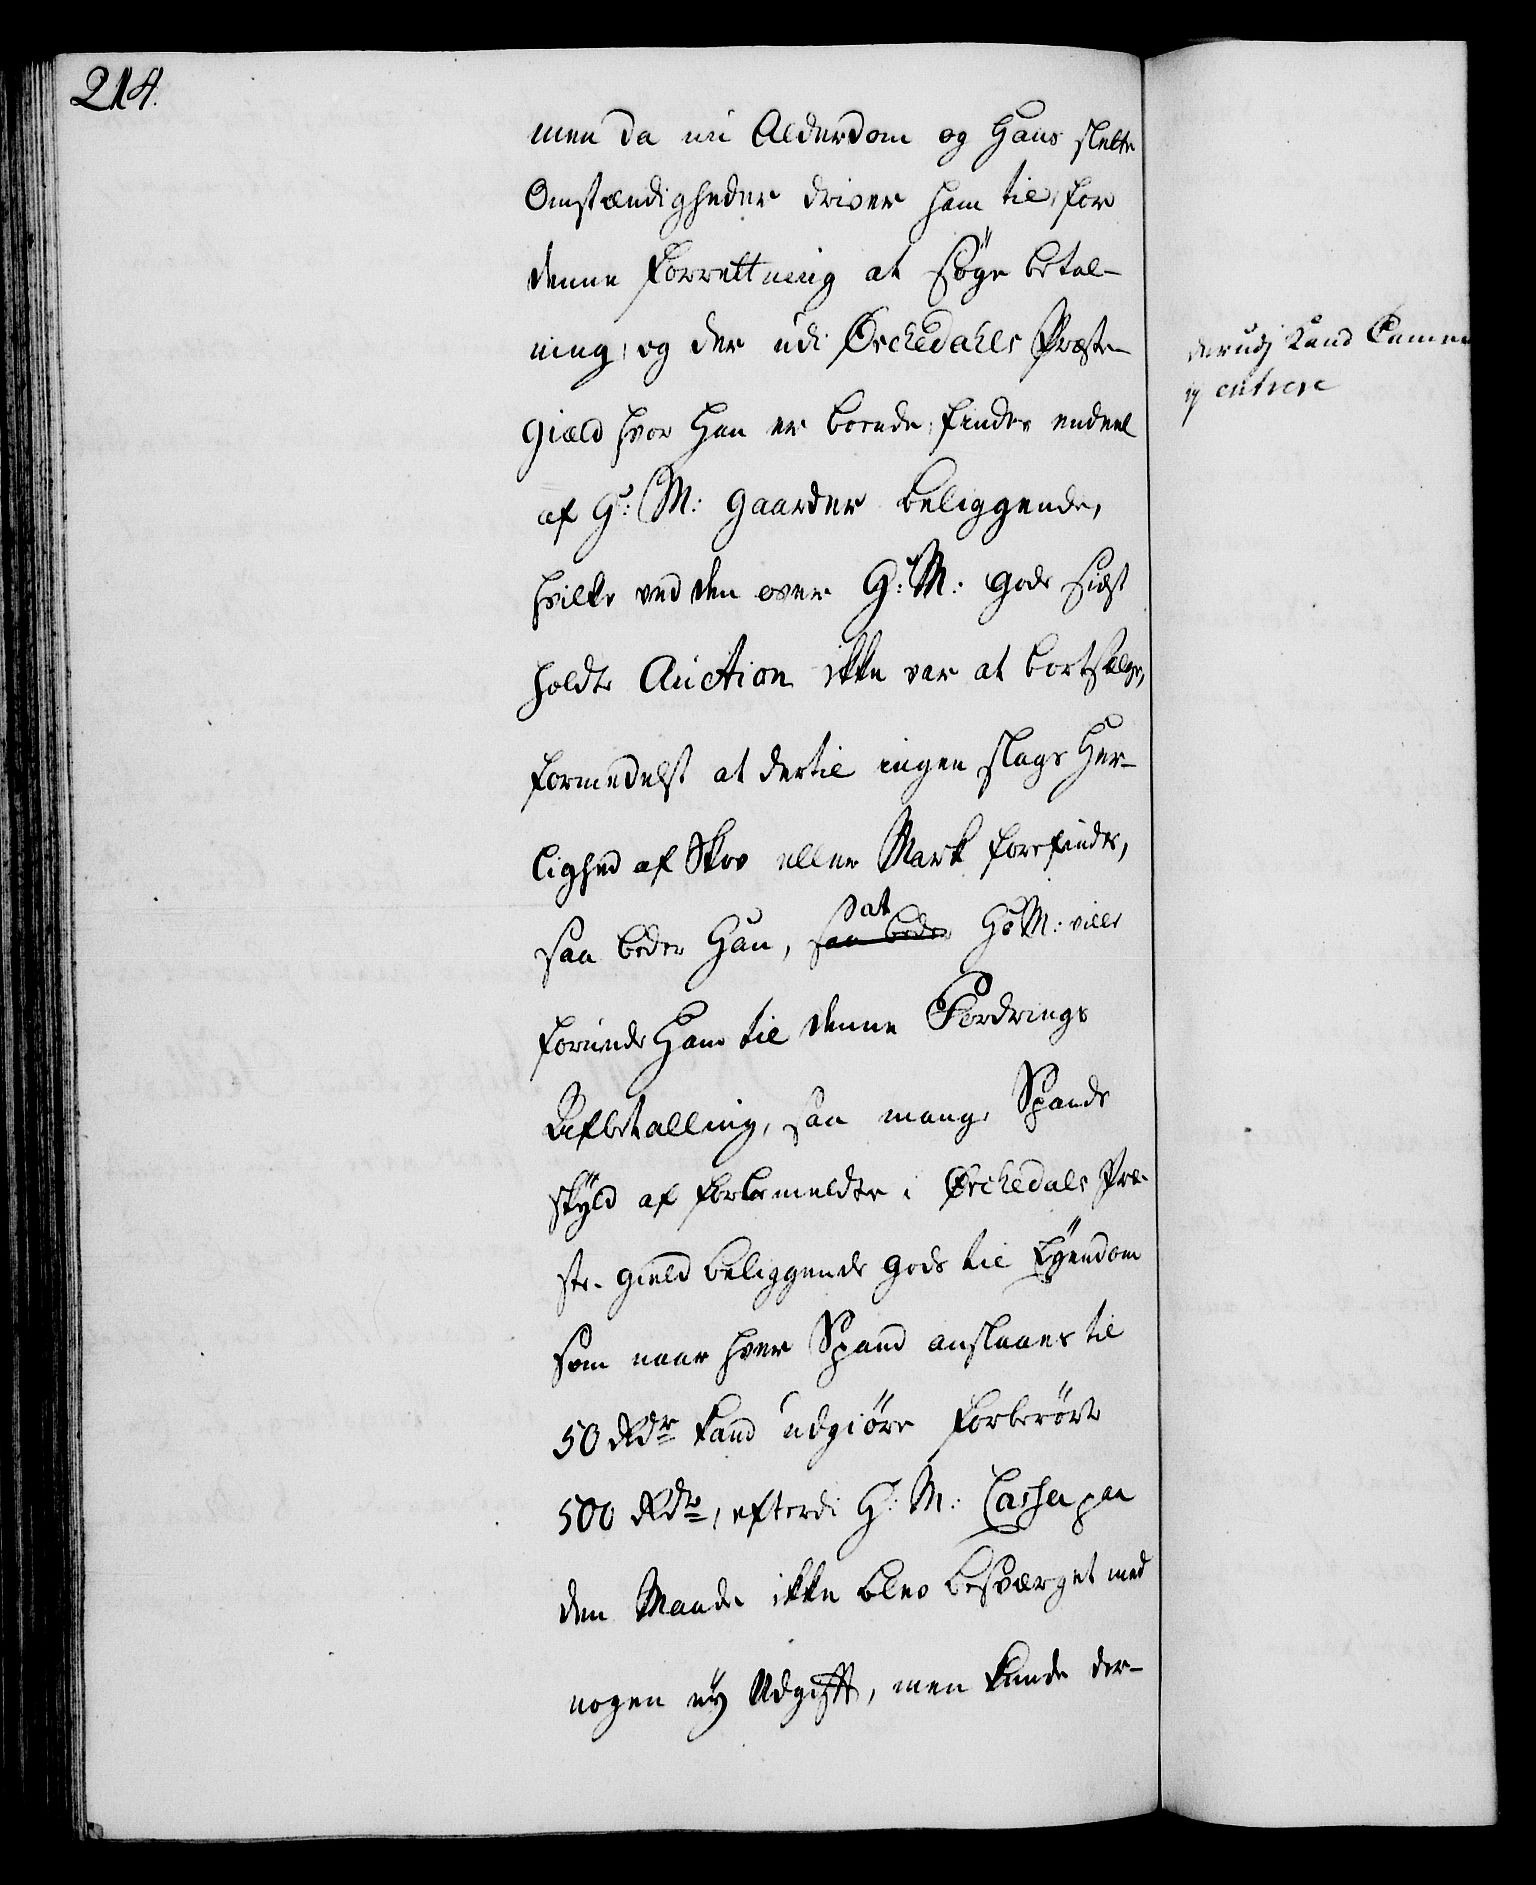 214.
men da nu Alderdom og Hans slette
Omstændigheder driver ham til, for
denne Forrettning at søge betal-
ning, og der udi Ørchedahls Præste-
Gield hvor Han er boende, findes endeel
af H: M: Gaarder beliggende,
hvilke ved den over H: M: Gods sidst
holdte Auction ikke var at bortsælge,
formedelst at dertil ingen slags Her-
lighed af Skov eller Mark forefindes,
at
saa beder Han, saa beder H: M: ville
forunde Ham til denne Fordrings
Afbetalling, saa mange Spands
skyld af forbemeldte i Ørchedals Præ-
ste-gield beliggende Gods til Eyendom
som naar hver Spand anslaaes til
50 Rdr kand udgiøre forberørte
500 Rdr, efterdi H: M: Cassa paa
den Maade ikke blev besværget med
nogen ny Udgifft, men kunde der-
derudj kand Camer
ej entrere